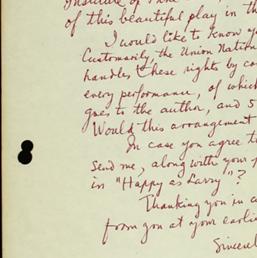 Institute of
of this beautiful play in th
I would like to know yo
Customarily, the Union Nation
handles these rights by co
every performance, of which
goes to the author, and 5
Would this arrangement
In case you agree t
send me, along with your p
in "Happy as Larry"?
Thanking you in a
from you at your earlie
Sincerel